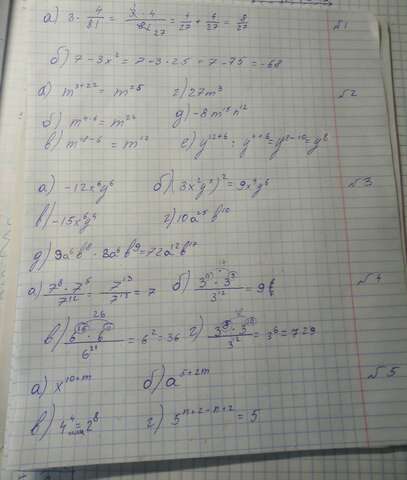 а) 3 · 4/81 = 3 · 4/81 27 = 4/27 + 4/27 = 8/27 №1
б) 7 - 3x² = 7 - 3 · 25 = 7 - 75 = -68
а) m³⁺²² = m²⁵ г) 27m³ №2
б) m⁴·⁶ = m²⁴ д) -8m¹⁵n¹²
в) m¹⁸⁻⁶ = m¹² е) y¹²⁺⁶
а) -12x⁶y⁶ б) (3x²y³)² = 9x⁴y⁶ №3
в) -15x⁶y⁹ г) 10a²⁵b¹⁰
д) 9a⁶b⁸ · 8a⁶b⁹ = 72a¹²b¹⁷
а) 7⁸ · 7⁵/7¹² = 7¹³/7¹² = 7 б) /3¹² = 9 №4
в) /6²⁴ = 6² = 36 г) /3¹² = 3⁶ = 729
а) x¹⁰⁺ᵐ б) a⁵⁺²ᵐ №5
в) 4⁴ = 2⁸ г) 5ⁿ⁺²⁻ⁿ⁺² = 5